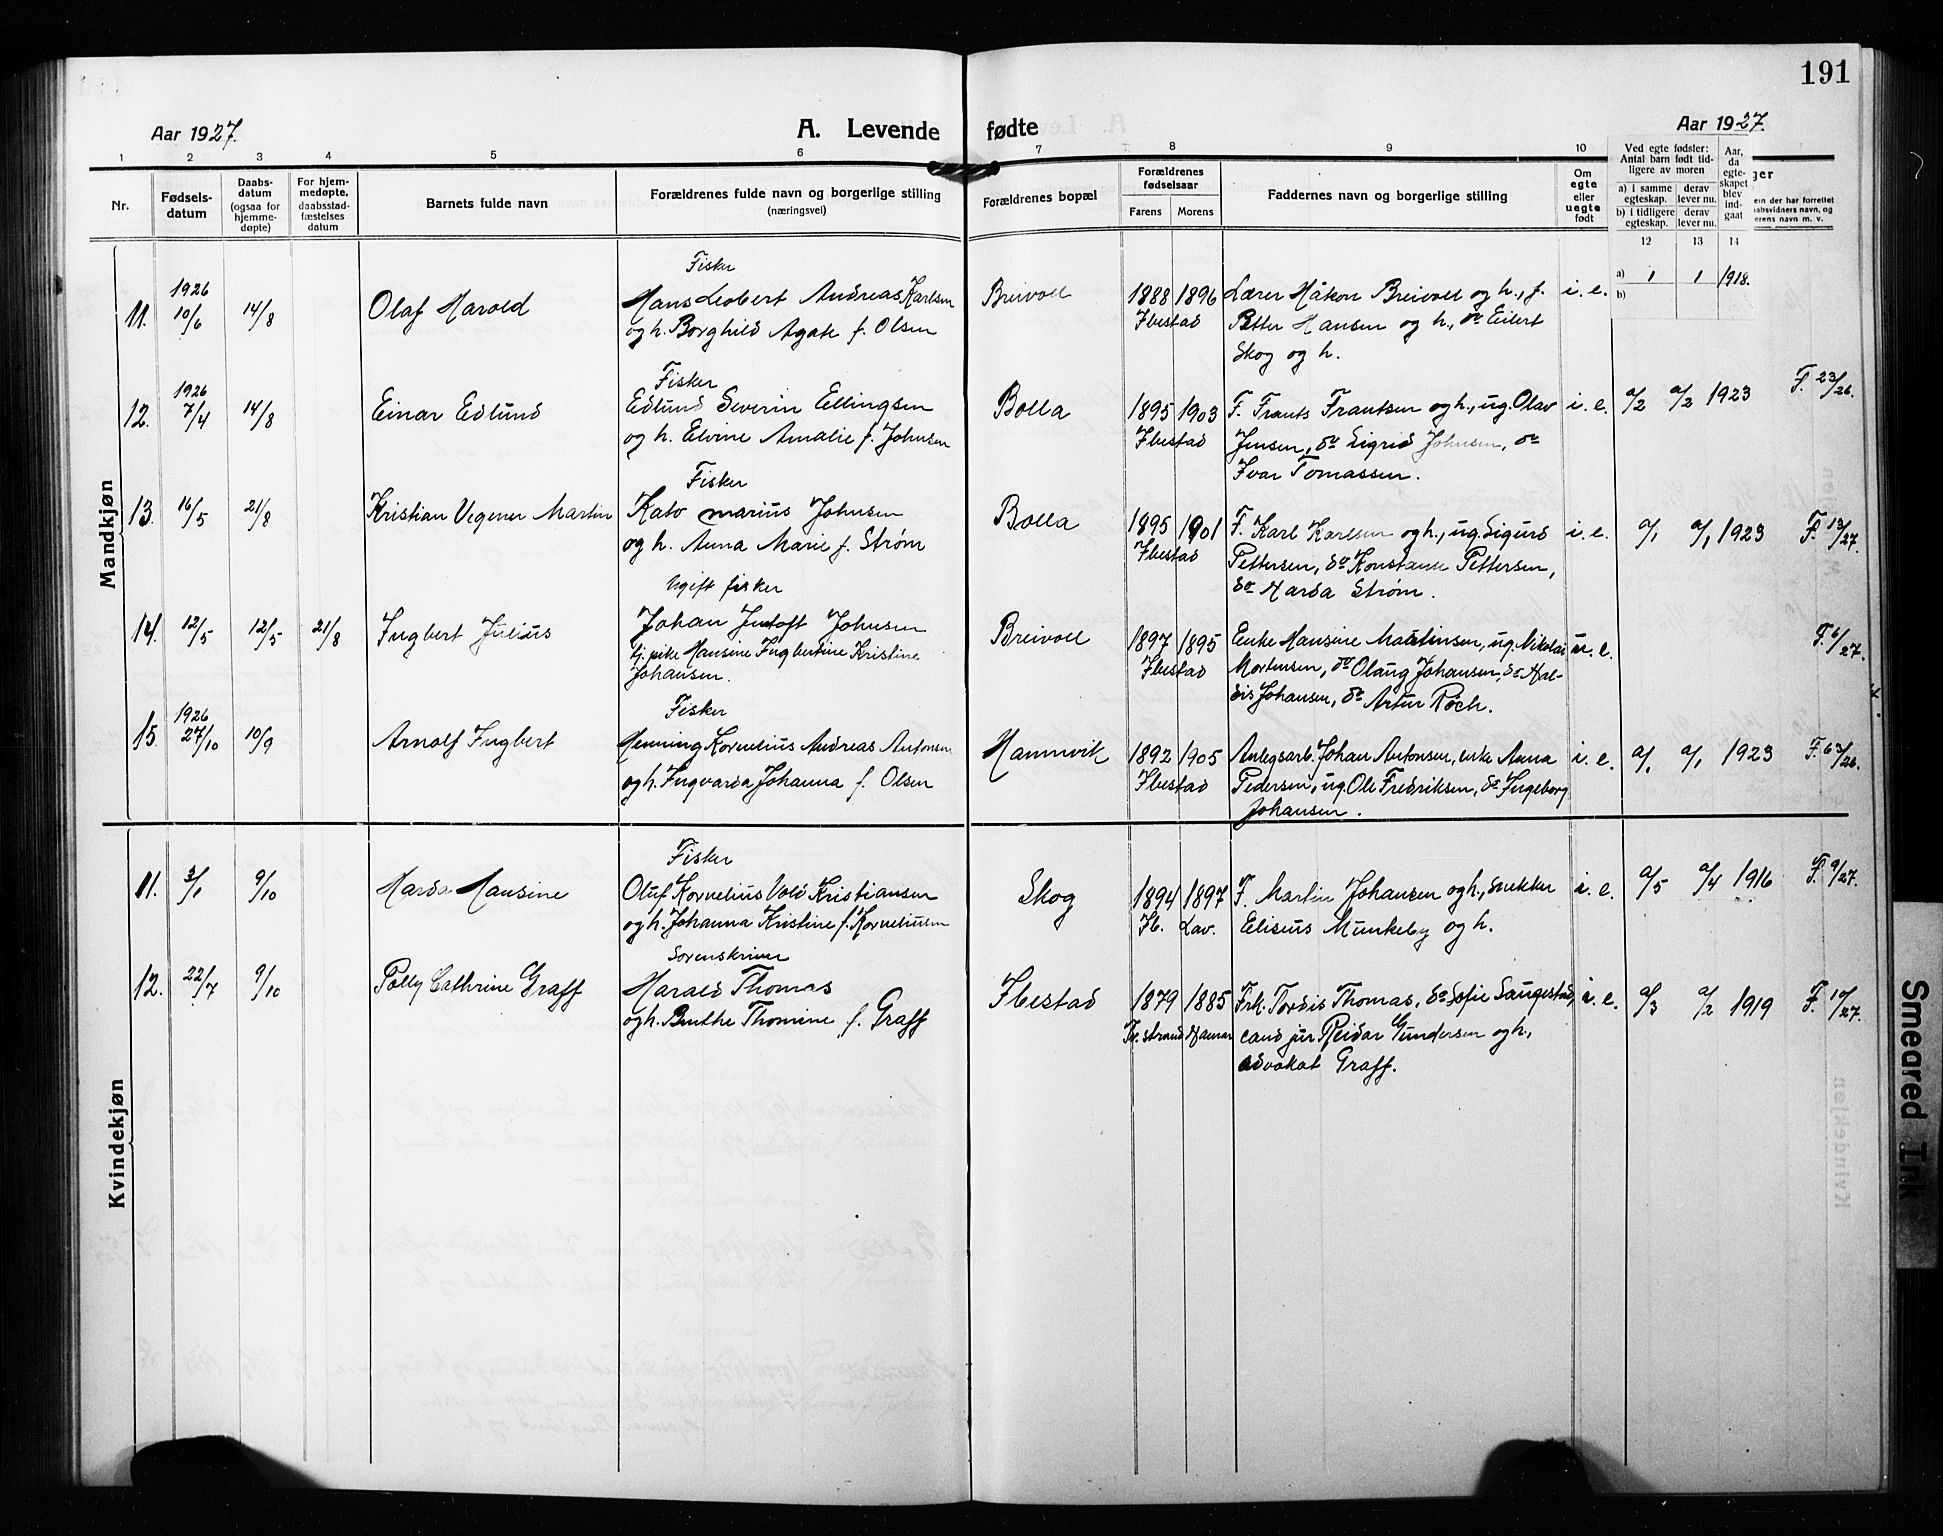 191
Aar 1927.
A. Levende fødte
Aar 1927.
1 2 3 4 5 6 7 8 9 10
Nr.
Fødsels-
datum
Daabs-
datum
(ogsaa for
hjemme-
døpte)
For hjem-
medøpte,
daabsstad-
fæstelses
datum
Barnets fulde navn
Forældrenes fulde navn og borgerlige stilling
(næringsvei)
Forældrenes bopæl
Forældrenes
fødselsaar
Farens Morens
Faddernes navn og borgerlige stilling
Om
egte
eller
uegte
født
Ved egte fødsler:
Antal barn født tid-
ligere av moren
a) i samme egteskap. derav lever nu.
b) i tidligere egteskap. derav lever nu.
Aar,
da
egte-
skapet
blev
ind-
gaat
12 13 14
ger
Mandkjøn
11. 1926 10/6 14/8 Olaf Harold
Fisker
Hans Leobert Andreas Karlsen
og h. Borghild Agate f. Olsen
Breivoll 1888 1896 Ibestad
Lærer Håkon Breivoll og h., f.
Petter Hansen og h., do Eilert
Skog og h.
i. e. a) 1 1 1918.
b)
12. 1926 7/4 14/8 Einar Edlund
Fisker
Edlund Severin Ellingsen
og h. Elvine Amalie f. Johnsen
Bolla 1895 1903 Ibestad
F. Frants Frantsen og h., ug. Olav
Jensen, do Sigrid Johnsen, do
Ivar Tomassen.
i. e. a/2 a/2 1923 F. 23/26.
13. 16/5 21/8 Kristian Vegener Martin
Fisker
Kato Marius Johnsen
og h. Anna Marie f. Strøm
Bolla 1895 1901 Ibestad
F. Karl Karlsen og h., ug. Sigurd
Pettersen, do Konstanse Pettersen,
do Harda Strøm.
i. e. a/1 a/1 1923 F. 13/27.
14. 12/5 12/5 21/8 Ingbert Julius
Ugift fisker
Johan Jentoft Johnsen
tj. pike Hansine Ingbertine Kristine
Johansen.
Breivoll 1897 1895 Ibestad
Enke Hansine Martinsen, ug. Nikolai
Mortensen, do Olaug Johansen, do Hal-
dis Johansen, do Artur Røch.
u. e. F. 6/27.
15. 1926 27/10 10/9 Arnolf Ingbert
Fisker
Henning Kornelius Andreas Antonsen
og h. Ingvarda Johanna f. Olsen
Hamnvik 1892 1905 Ibestad
Anlegsarb. Johan Antonsen, enke Anna
Pedersen, ug. Ole Fredriksen, do Ingeborg
Johansen.
i. e. a/1 a/1 1923 F. 63/26.
Kvindekjøn
11. 3/1 9/10 Harda Hansine
Fisker
Oluf Kornelius Vold Kristiansen
og h. Johanna Kristine f. Korneliusen
Skog 1894 1897 Ib. Lav.
F. Martin Johansen og h., snekker
Eliseus Munkeby og h.
i. e. a/5 a/4 1916 F. 9/27.
12. 22/7 9/10 Polly Cathrine Graff
Sorenskriver
Harald Thomas
og h. Benthe Thomine f. Graff
Ibestad 1879 1885 Tv. strand Hamar
Frk. Tordis Thomas, do Sofie Saugestad,
cand jur Reidar Gundersen og h.,
advokat Graff.
i. e. a/3 a/2 1919 F. 10/27.
Smeared Ink